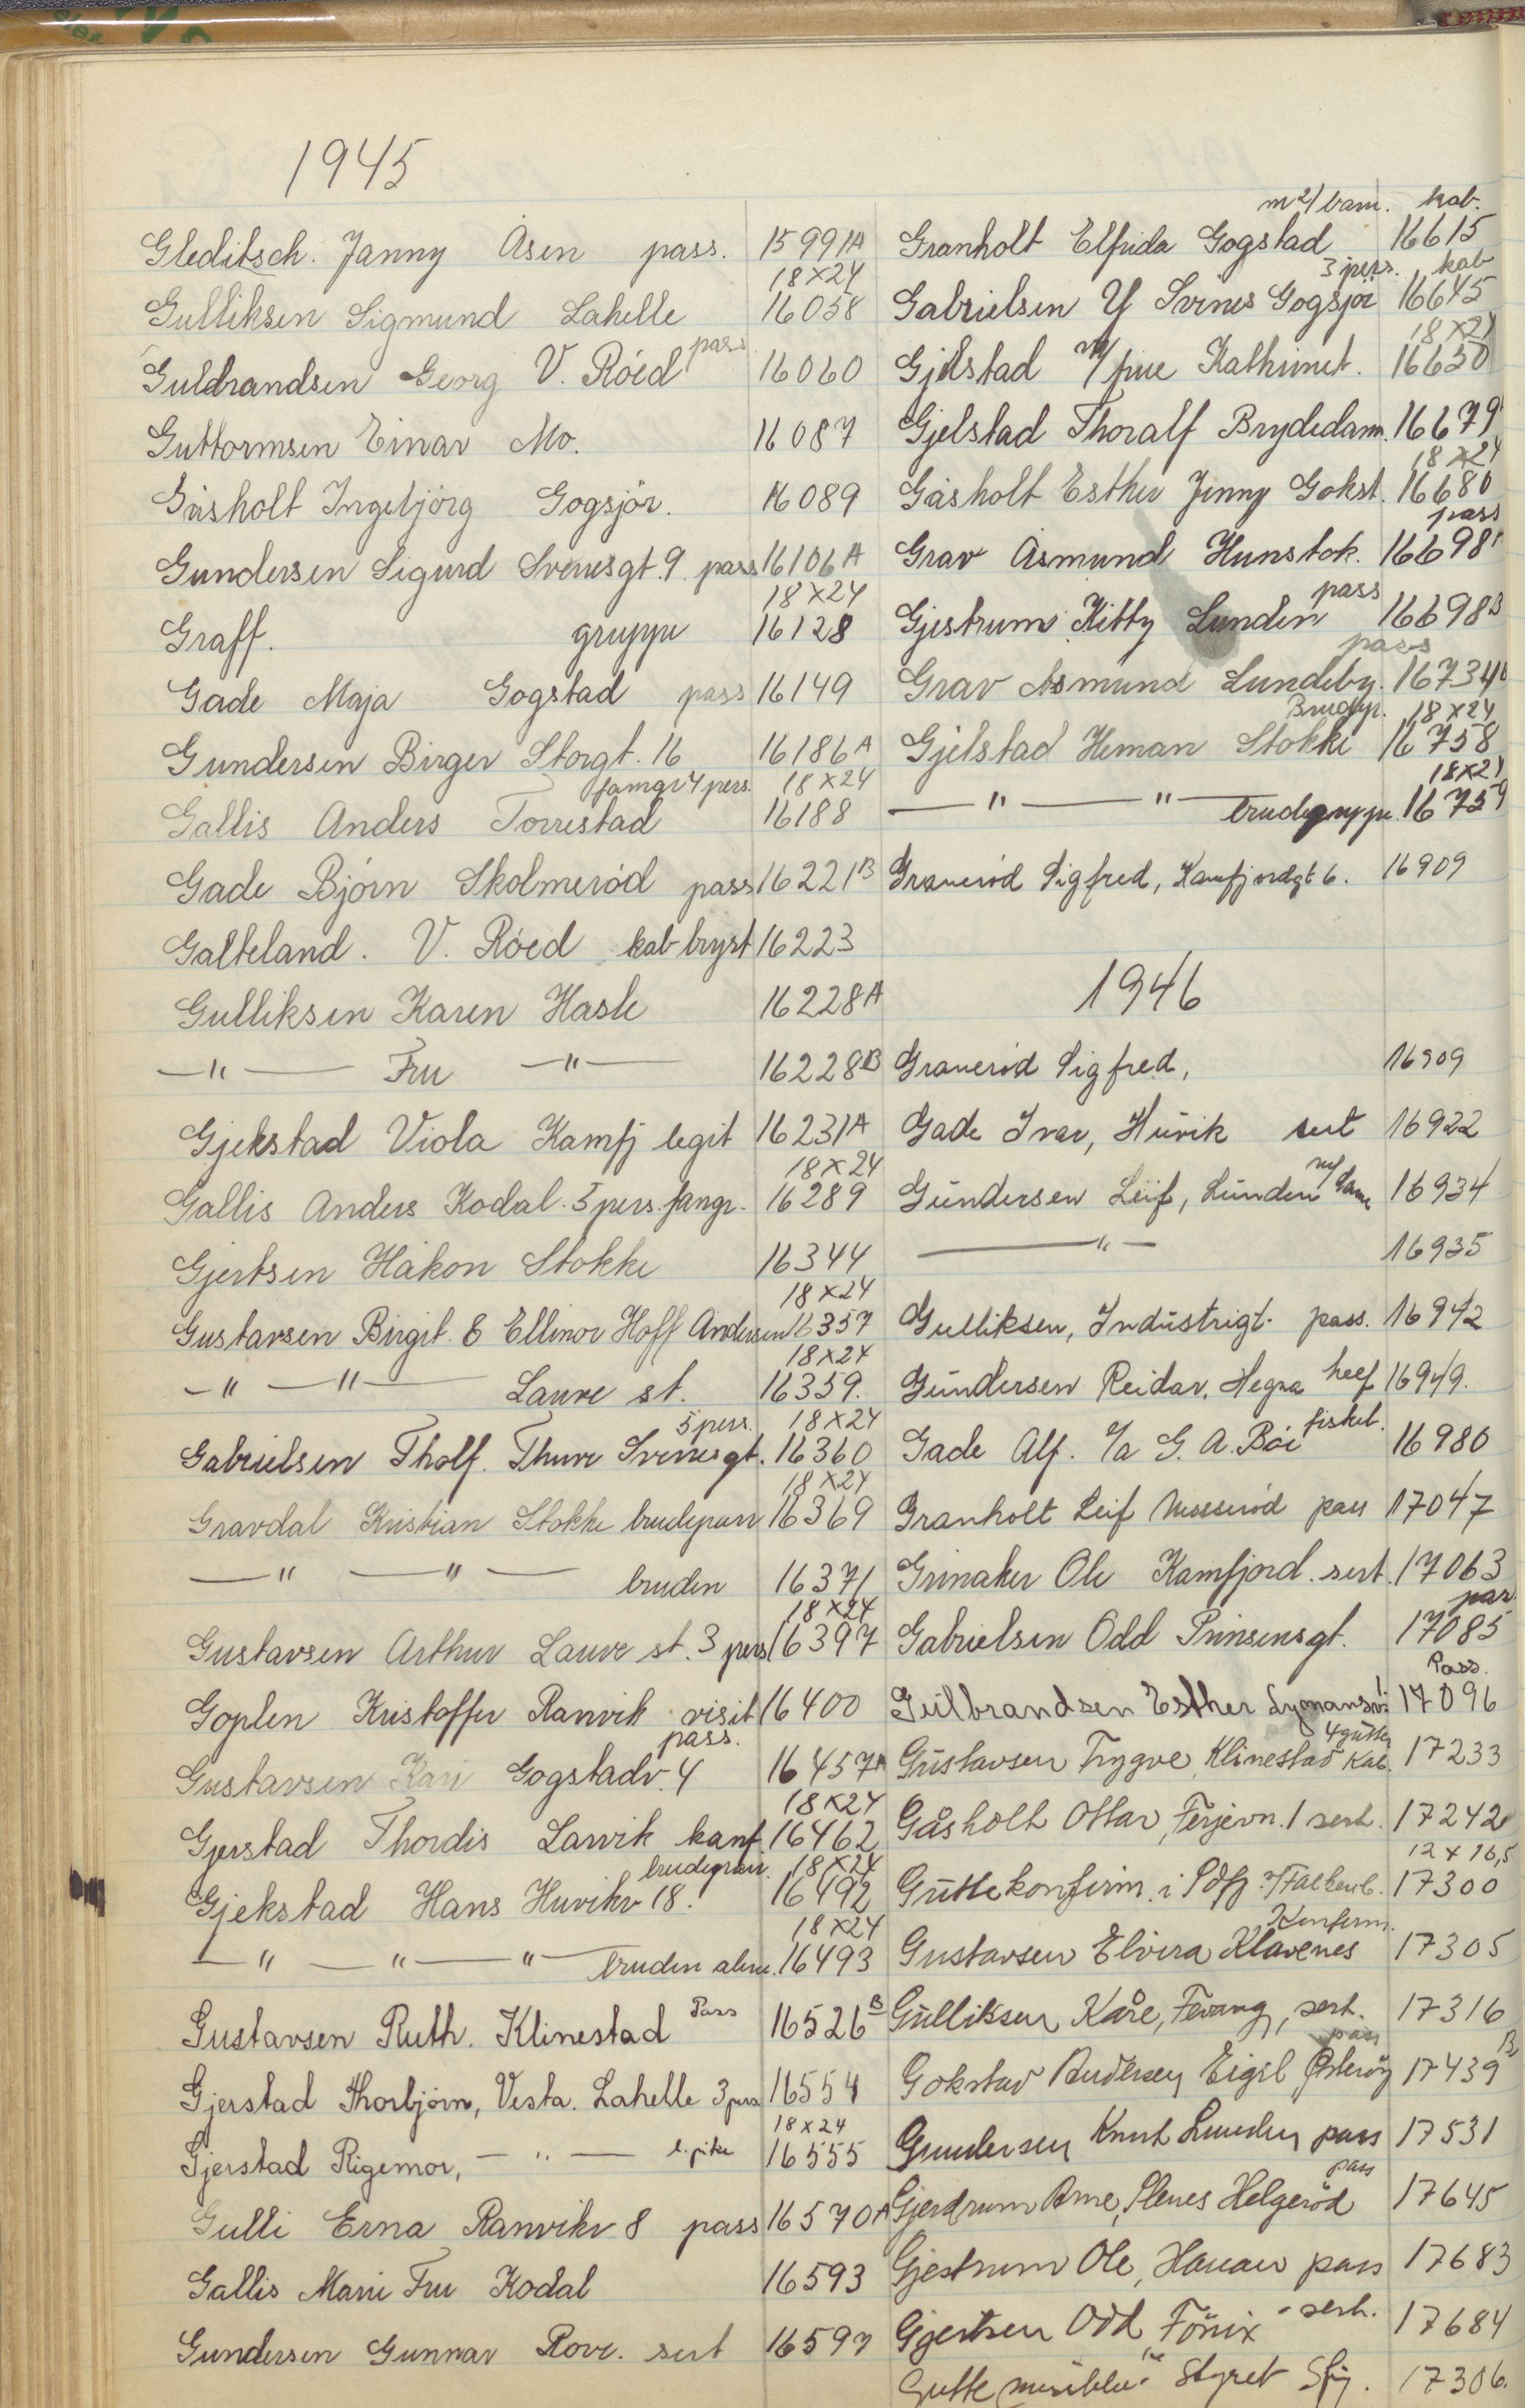 1945
Gleditsch. Janny Åsen pass. 15991A
18×24
Gulliksen Sigmund Lahelle 16058
Guldrandsen Georg V. Röed pass 16060
Guttormsen Einar Mo. 16087
Gåsholt Ingebjörg Gogsjör. 16089
Gundersen Sigurd Sverresgt. 9. pass 16106A
18×24
Graff. gruppe 16128
Gade Maja Gogstad pass 16149
Gundersen Birger Storgt. 16 16186A
famgr 4 pers. 18×24
Gallis Anders Torrestad 16188
Gade Björn Skolmeröd pass 16221B
Galteland. V. Röed kab bryst 16223
Gulliksen Karen Hasle 16228A
—"— Fru —"— 16228B
Gjekstad Viola Kamfj legit 16231A
18×24
Gallis Anders Kodal. 5 pers. famgr. 16289
Gjertsen Håkon Stokke 16344
18×24
Gustavsen Birgit. & Ellinor Hoff Andersen 16357
18×24
—"—"— Lauve st. 16359.
5 pers. 18×24
Gabrielsen Tholf. Thure Sverresgt. 16360
18×24
Gravdal Kristian Stokke brudepar 16369
—"—"— bruden 16371
18×24
Gustavsen Arthur Lauve st. 3 pers 16397
Goplen Kristoffer Ranvik visit 16400
pass.
Gustavsen Kari Gogstadv. 4 16457A
18×24
Gjerstad Thordis Larvik kanf 16462
18×24
Gjekstad Hans Huvikv 18. 16492
18×24
—"—"—"— bruden alene. 16493
Gustavsen Ruth. Klinestad Pass 16526B
Gjerstad Thorbjörn, Vesta. Lahelle 3 pers 16554
18×24
Gjerstad Rigemor, —"— l. pike 16555
Gulli Erna Ranvikv 8 pass 16570A
Gallis Marie Fru Kodal 16593
Gundersen Gunnar Rove. sert 16597
m 2/ barn. kab.
Granholt Elfrida Gogstad 16615
3 pers. kab
Gabrielsen Y Svines Gogsjör 16645
18×24
Gjelstad m/ frue Kathrinet. 16650
Gjelstad Thoralf Brydedam. 16679
18×24
Gåsholt Esther Jenny Gokst. 16680
pass
Grav Åsmund Hunstok. 16698A
pass
Gjestrum Kitty Lunden 16698B
pass
Grav Asmund Lundeby. 16734
Brudgr. 18×24
Gjelstad Heman Stokke 16758
18×24
—"—"— brudegruppe. 16759
Graveröd Sigfred, Kamfjordgt 6. 16909
1946
Graveröd Sigfred, 16909
Gade Ivar, Huvik sert 16922
Gundersen Leif, Lunden m/ dame 16934
—"— 16935
Gulliksen, Industrigt. pass. 16942
Gundersen Reidar, Hegna heef 16949.
Gade Alf. %a G. A. Böe fiskeb. 16980
Granholt Leif Mosseröd pass 17047
Grinaker Ole Kamfjord. sert. 17063
pass
Gabrielsen Odd Prinsensgt. 17085
Pass.
Gulbrandsen Esther 17096
4 gutter
Gustavsen Trygve, Klinestad Kab. 17233
Gåsholt Ottar, Ferjevn. 1 sert. 17242
12×16,5
Guttekonfirm. i Sdfj. 17300
Konfirm.
Gustavsen Elvira Klavenes 17305
Gulliksen Kåre, Fevang, sert. 17316
pass
Gokstad Andersen Eigil Österöy 17439B
Gundersen Knut Lunden pass 17531
pass
Gjerdrum Arne, Slenes Helgeröd 17645
Gjestrum Ole, Hauan pass 17683
Gjertsen Odd Fönix sert. 17684
Guttemusikken Styret Sfj. 17306.